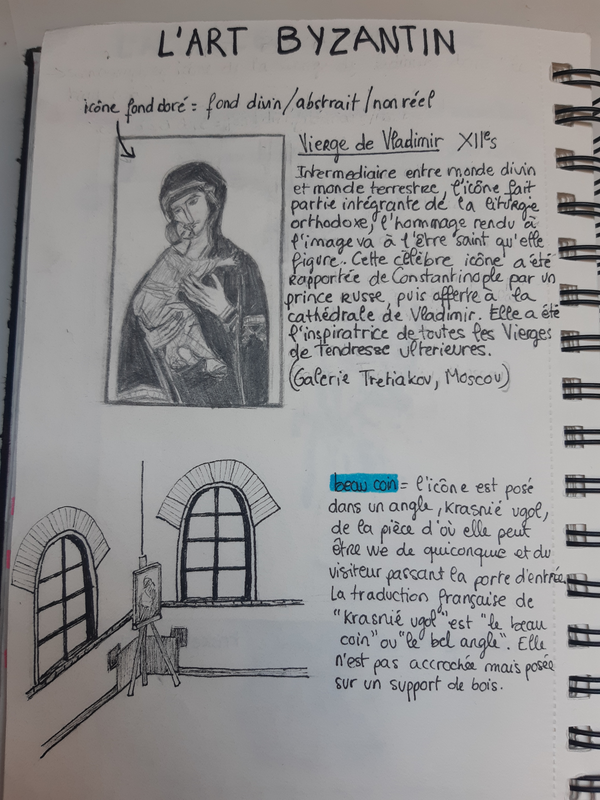 L'ART BYZANTIN
icône fond doré = fond divin/abstrait/non réel
Vierge de Vladimir XIIes
Intermediaire entre monde divin
et monde terrestre, l'icône fait
partie intégrante de la liturgie
orthodoxe, l'hommage rendu à
l'image va à l'Être saint qu'elle
figure. Cette célèbre icône a été
rapportée de Constantinople par un
prince russe, puis offerte à la
cathédrale de Vladimir. Elle a été
l'inspiratrice de toutes les Vierges
de Tendresse ulterieures.
(Galerie Tretiakov, Moscou)
beau coin = l'icône est posé
dans un angle, Krasnié ugol,
de la pièce d'où elle peut
être vue de quiconque et du
visiteur passant la porte d'entrée.
La traduction française de
"Krasnié ugol" est "le beau
coin" ou "le bel angle". Elle
n'est pas accrochée mais posée
sur un support de bois.